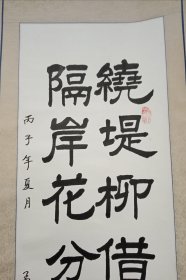 繞堤柳借
隔岸花分
丙子年夏月